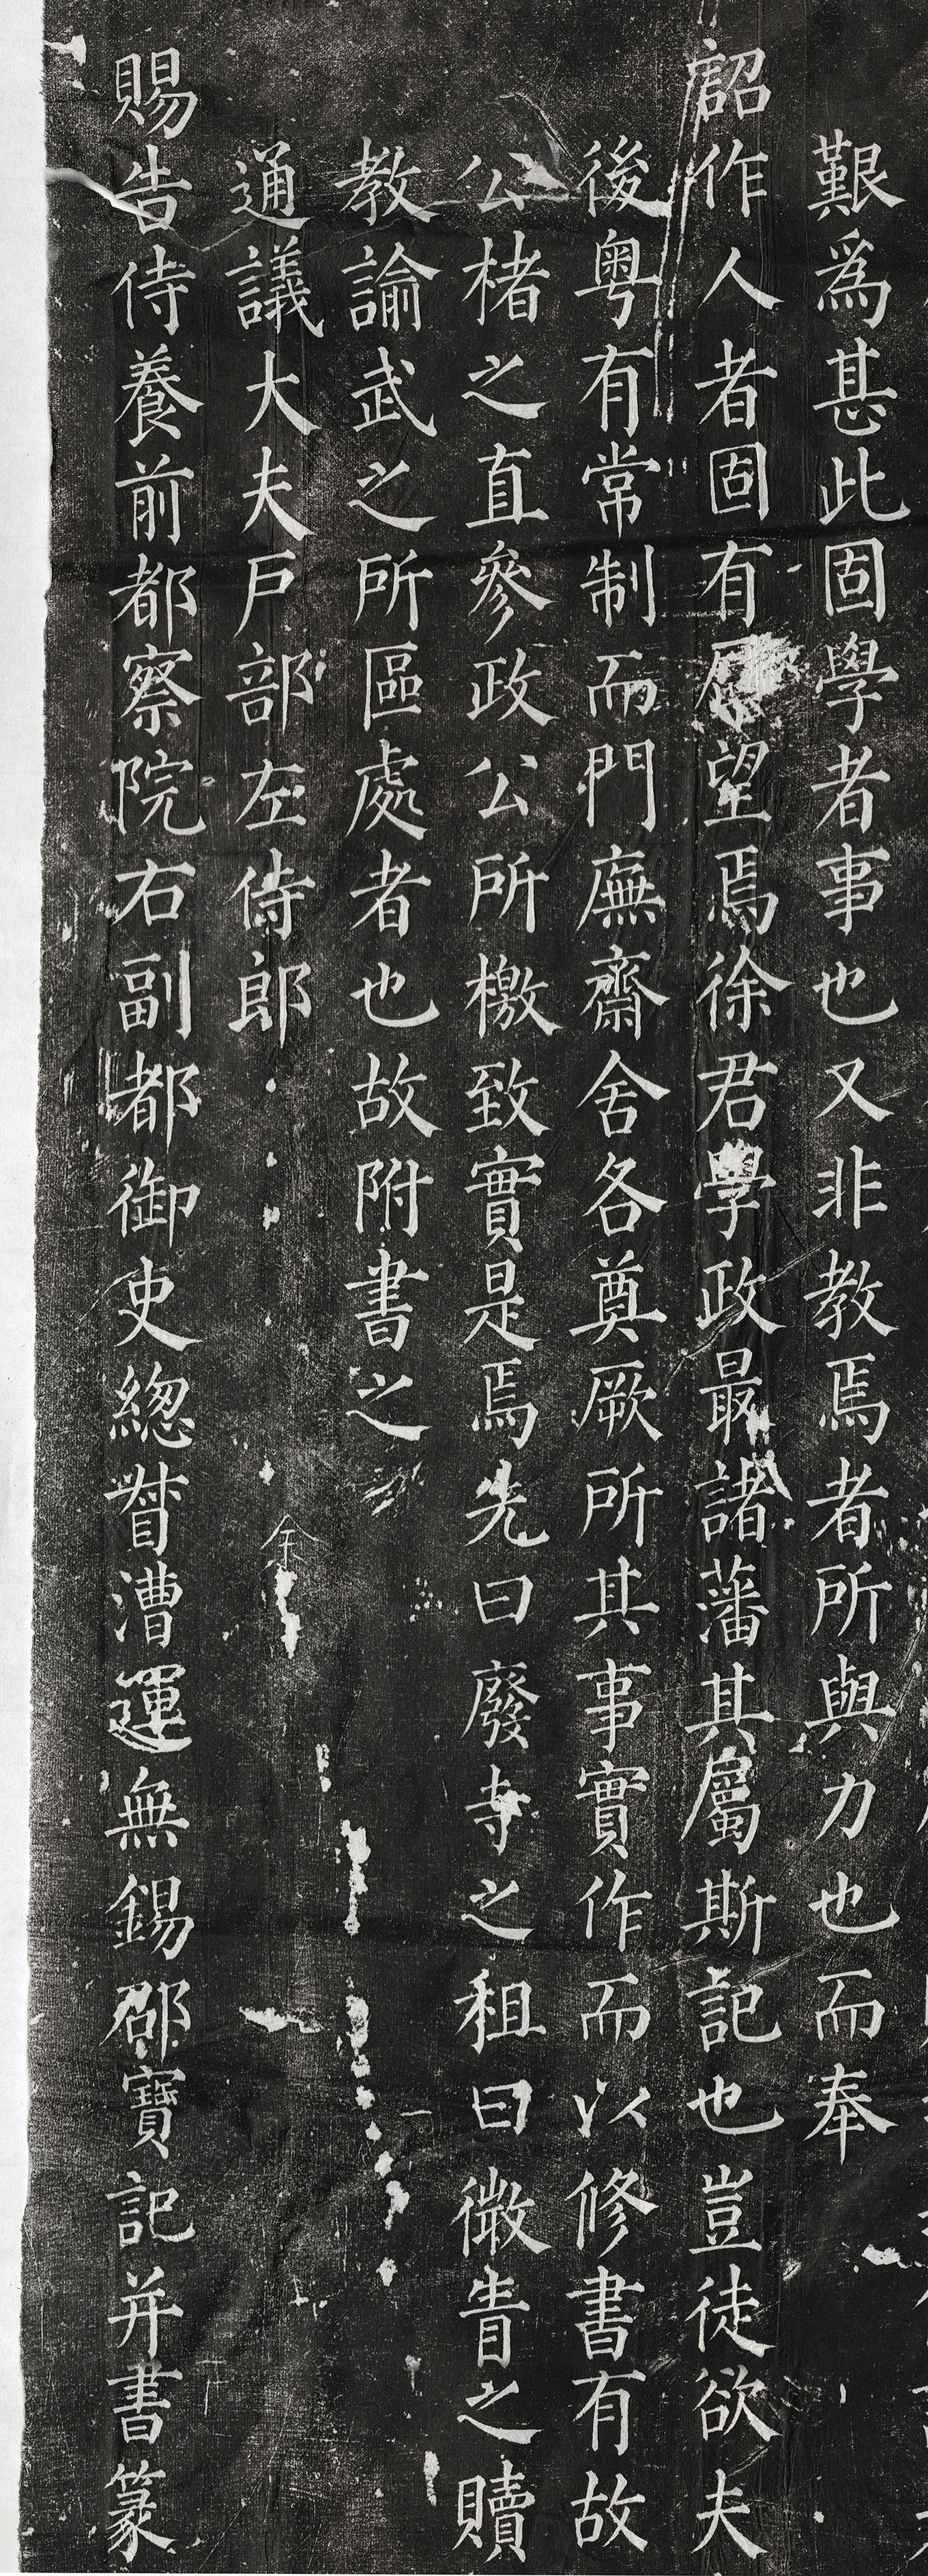 艱爲甚此固學者事也又非教焉者所與力也而奉
詔作人者固有厚望焉徐君學政最諸藩其屬斯記也豈徒欲夫
後粤有常制而門廡齋舍各奠厥所其事實作而以修書有故
公楮之直參政公所檄致實是焉先曰廢寺之租曰徵眚之贖
教諭武之所區處者也故附書之
通議大夫戶部左侍郎
余
賜告侍養前都察院右副都御史緫督漕運無錫邵寶記并書篆